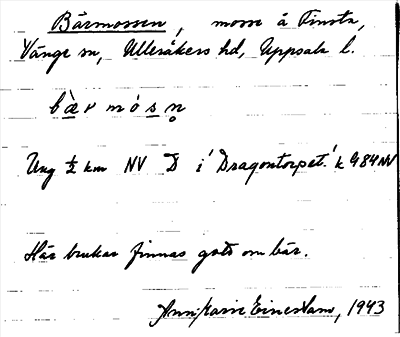 Bärmossen, mosse å Finsta,
Vänge sn, Ulleråkers hd, Uppsala l.
bæ̀rmósn̥
Ung ½ km NV D i 'Dragontorpet' k 984 NV
Här brukar finnas gott om bär.
Ann-Marie 1943